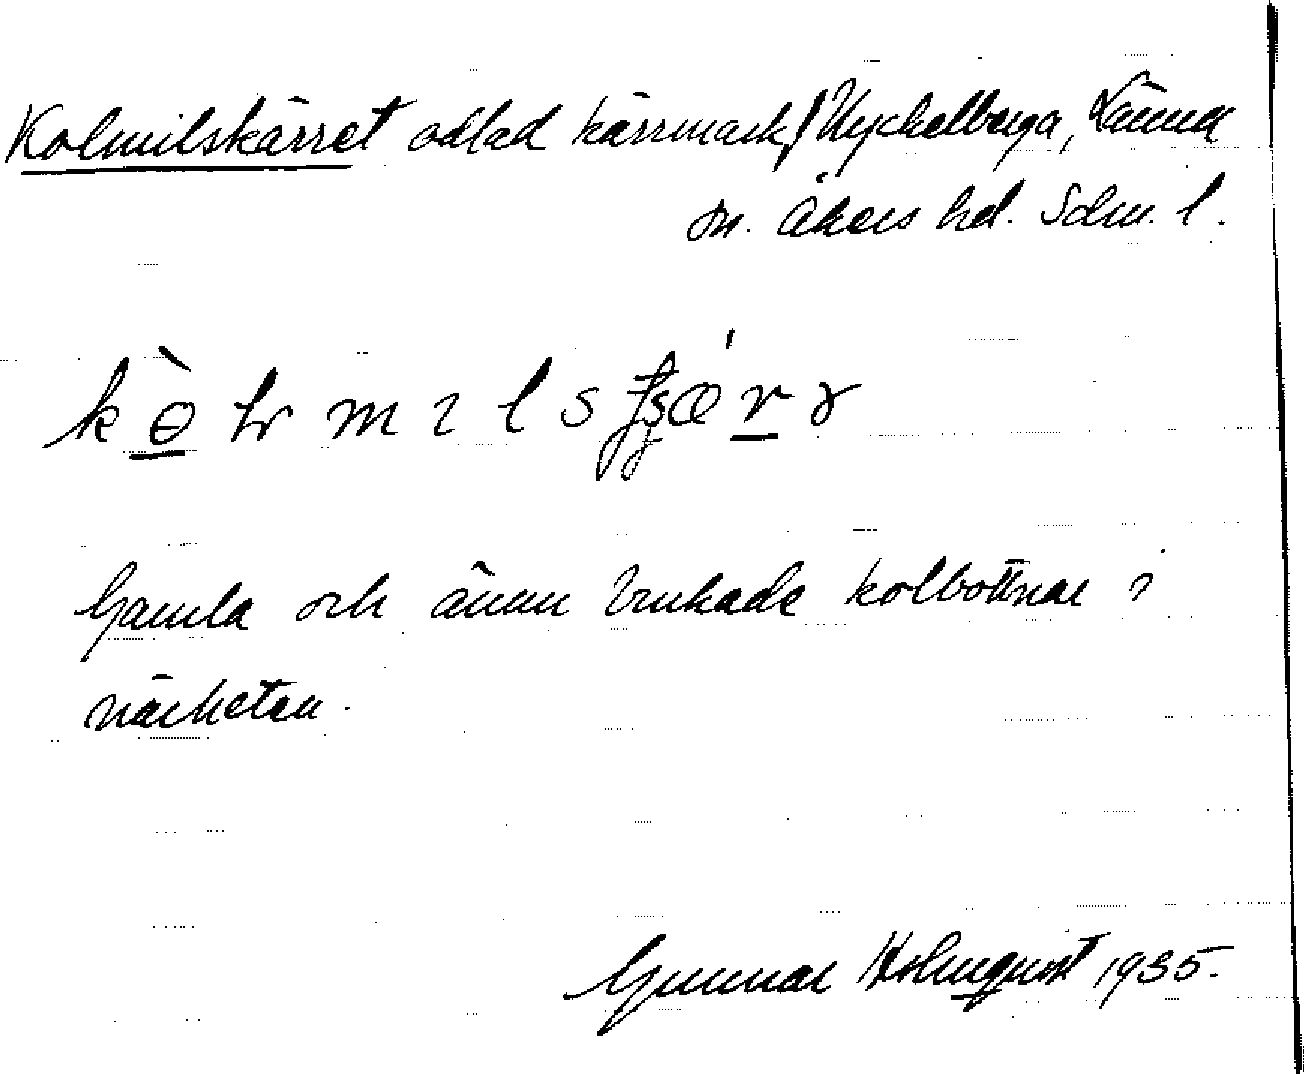 Kolmilskärret odlad kärrmark, Nyckelberga, Länna
sn. Åkers hd. Södm. l.
Gamla och ännu brukade kolbottnar i
närheten.
Gunnar Holmqvist 1935.